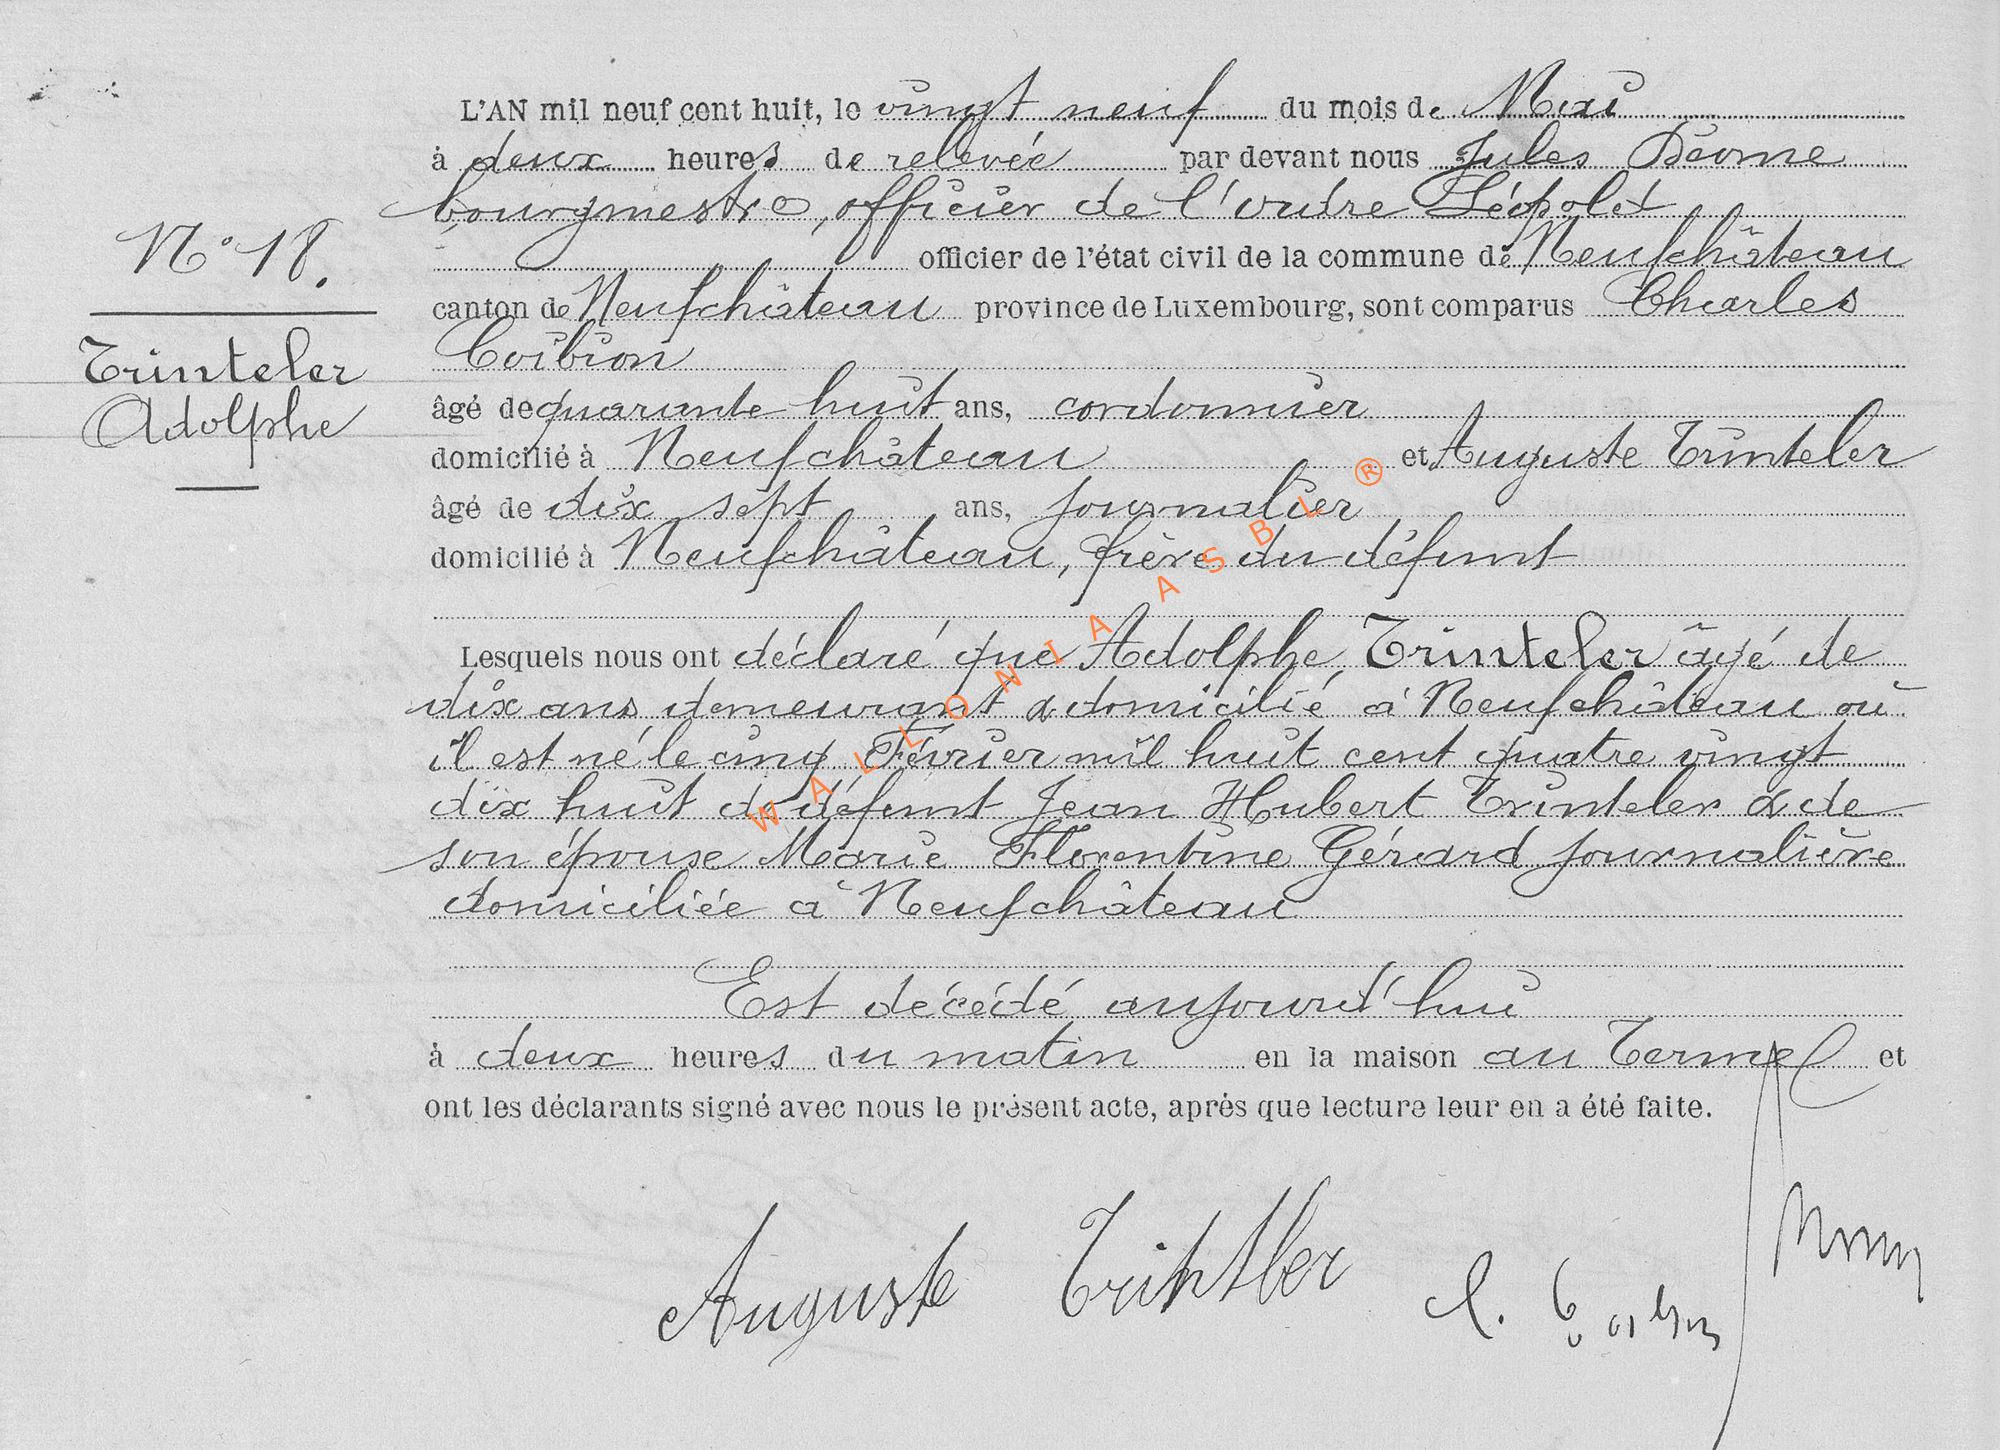 L'AN mil neuf cent huit, le vingt neuf du mois de Mai
à deux heures de relevée par devant nous Jules
bourgmestre, officier de l'ordre Léopold
N° 18.
officier de l'état civil de la commune de Neufchâteau
canton de Neufchâteau province de Luxembourg, sont comparus Charles
Trinteler
Coibion
Adolphe
âgé de quarante huit ans, cordonnier
domicilié à Neufchâteau et Auguste Trinteler
âgé de dix sept ans, journalier
domicilié à Neufchâteau, frère du défunt
Lesquels nous ont déclaré que Adolphe Trinteler âgé de
dix ans demeurant & domicilié à Neufchâteau où
il est né le cinq Février mil huit cent quatre vingt
dix huit de défunt Jean Hubert Trinteler & de
son épouse Marie Florentine Gérard journalière
domiciliée à Neufchâteau
Est décédé aujourd'hui
à deux heures du matin en la maison au Terme et
ont les déclarants signé avec nous le présent acte, après que lecture leur en a été faite.
Auguste Trintler C. Coibion
WALLONIA ASBL ®